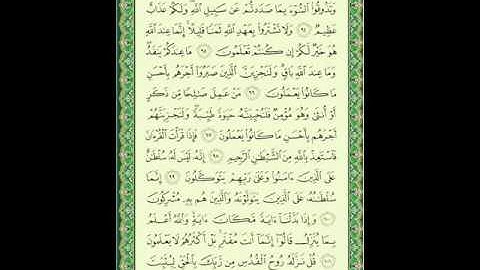 وَتَذُوقُوا۟ ٱلسُّوٓءَ بِمَا صَدَدتُّمْ عَن سَبِيلِ ٱللَّهِ وَلَكُمْ عَذَابٌ
عَظِيمٌ ٩٤ وَلَا تَشْتَرُوا۟ بِعَهْدِ ٱللَّهِ ثَمَنًا قَلِيلًا إِنَّمَا عِندَ ٱللَّهِ
هُوَ خَيْرٌ لَّكُمْ إِن كُنتُمْ تَعْلَمُونَ ٩٥ مَا عِندَكُمْ يَنفَدُ
وَمَا عِندَ ٱللَّهِ بَاقٍ وَلَنَجْزِيَنَّ ٱلَّذِينَ صَبَرُوٓا۟ أَجْرَهُم بِأَحْسَنِ
مَا كَانُوا۟ يَعْمَلُونَ ٩٦ مَنْ عَمِلَ صَٰلِحًا مِّن ذَكَرٍ
أَوْ أُنثَىٰ وَهُوَ مُؤْمِنٌ فَلَنُحْيِيَنَّهُۥ حَيَوٰةً طَيِّبَةً وَلَنَجْزِيَنَّهُمْ
أَجْرَهُم بِأَحْسَنِ مَا كَانُوا۟ يَعْمَلُونَ ٩٧ فَإِذَا قَرَأْتَ ٱلْقُرْءَانَ
فَٱسْتَعِذْ بِٱللَّهِ مِنَ ٱلشَّيْطَٰنِ ٱلرَّجِيمِ ٩٨ إِنَّهُۥ لَيْسَ لَهُۥ سُلْطَٰنٌ
عَلَى ٱلَّذِينَ ءَامَنُوا۟ وَعَلَىٰ رَبِّهِمْ يَتَوَكَّلُونَ ٩٩ إِنَّمَا
سُلْطَٰنُهُۥ عَلَى ٱلَّذِينَ يَتَوَلَّوْنَهُۥ وَٱلَّذِينَ هُم بِهِۦ مُشْرِكُونَ
١٠٠ وَإِذَا بَدَّلْنَآ ءَايَةً مَّكَانَ ءَايَةٍ وَٱللَّهُ أَعْلَمُ
بِمَا يُنَزِّلُ قَالُوٓا۟ إِنَّمَآ أَنتَ مُفْتَرٍۭ بَلْ أَكْثَرُهُمْ لَا يَعْلَمُونَ
١٠١ قُلْ نَزَّلَهُۥ رُوحُ ٱلْقُدُسِ مِن رَّبِّكَ بِٱلْحَقِّ لِيُثَبِّتَ